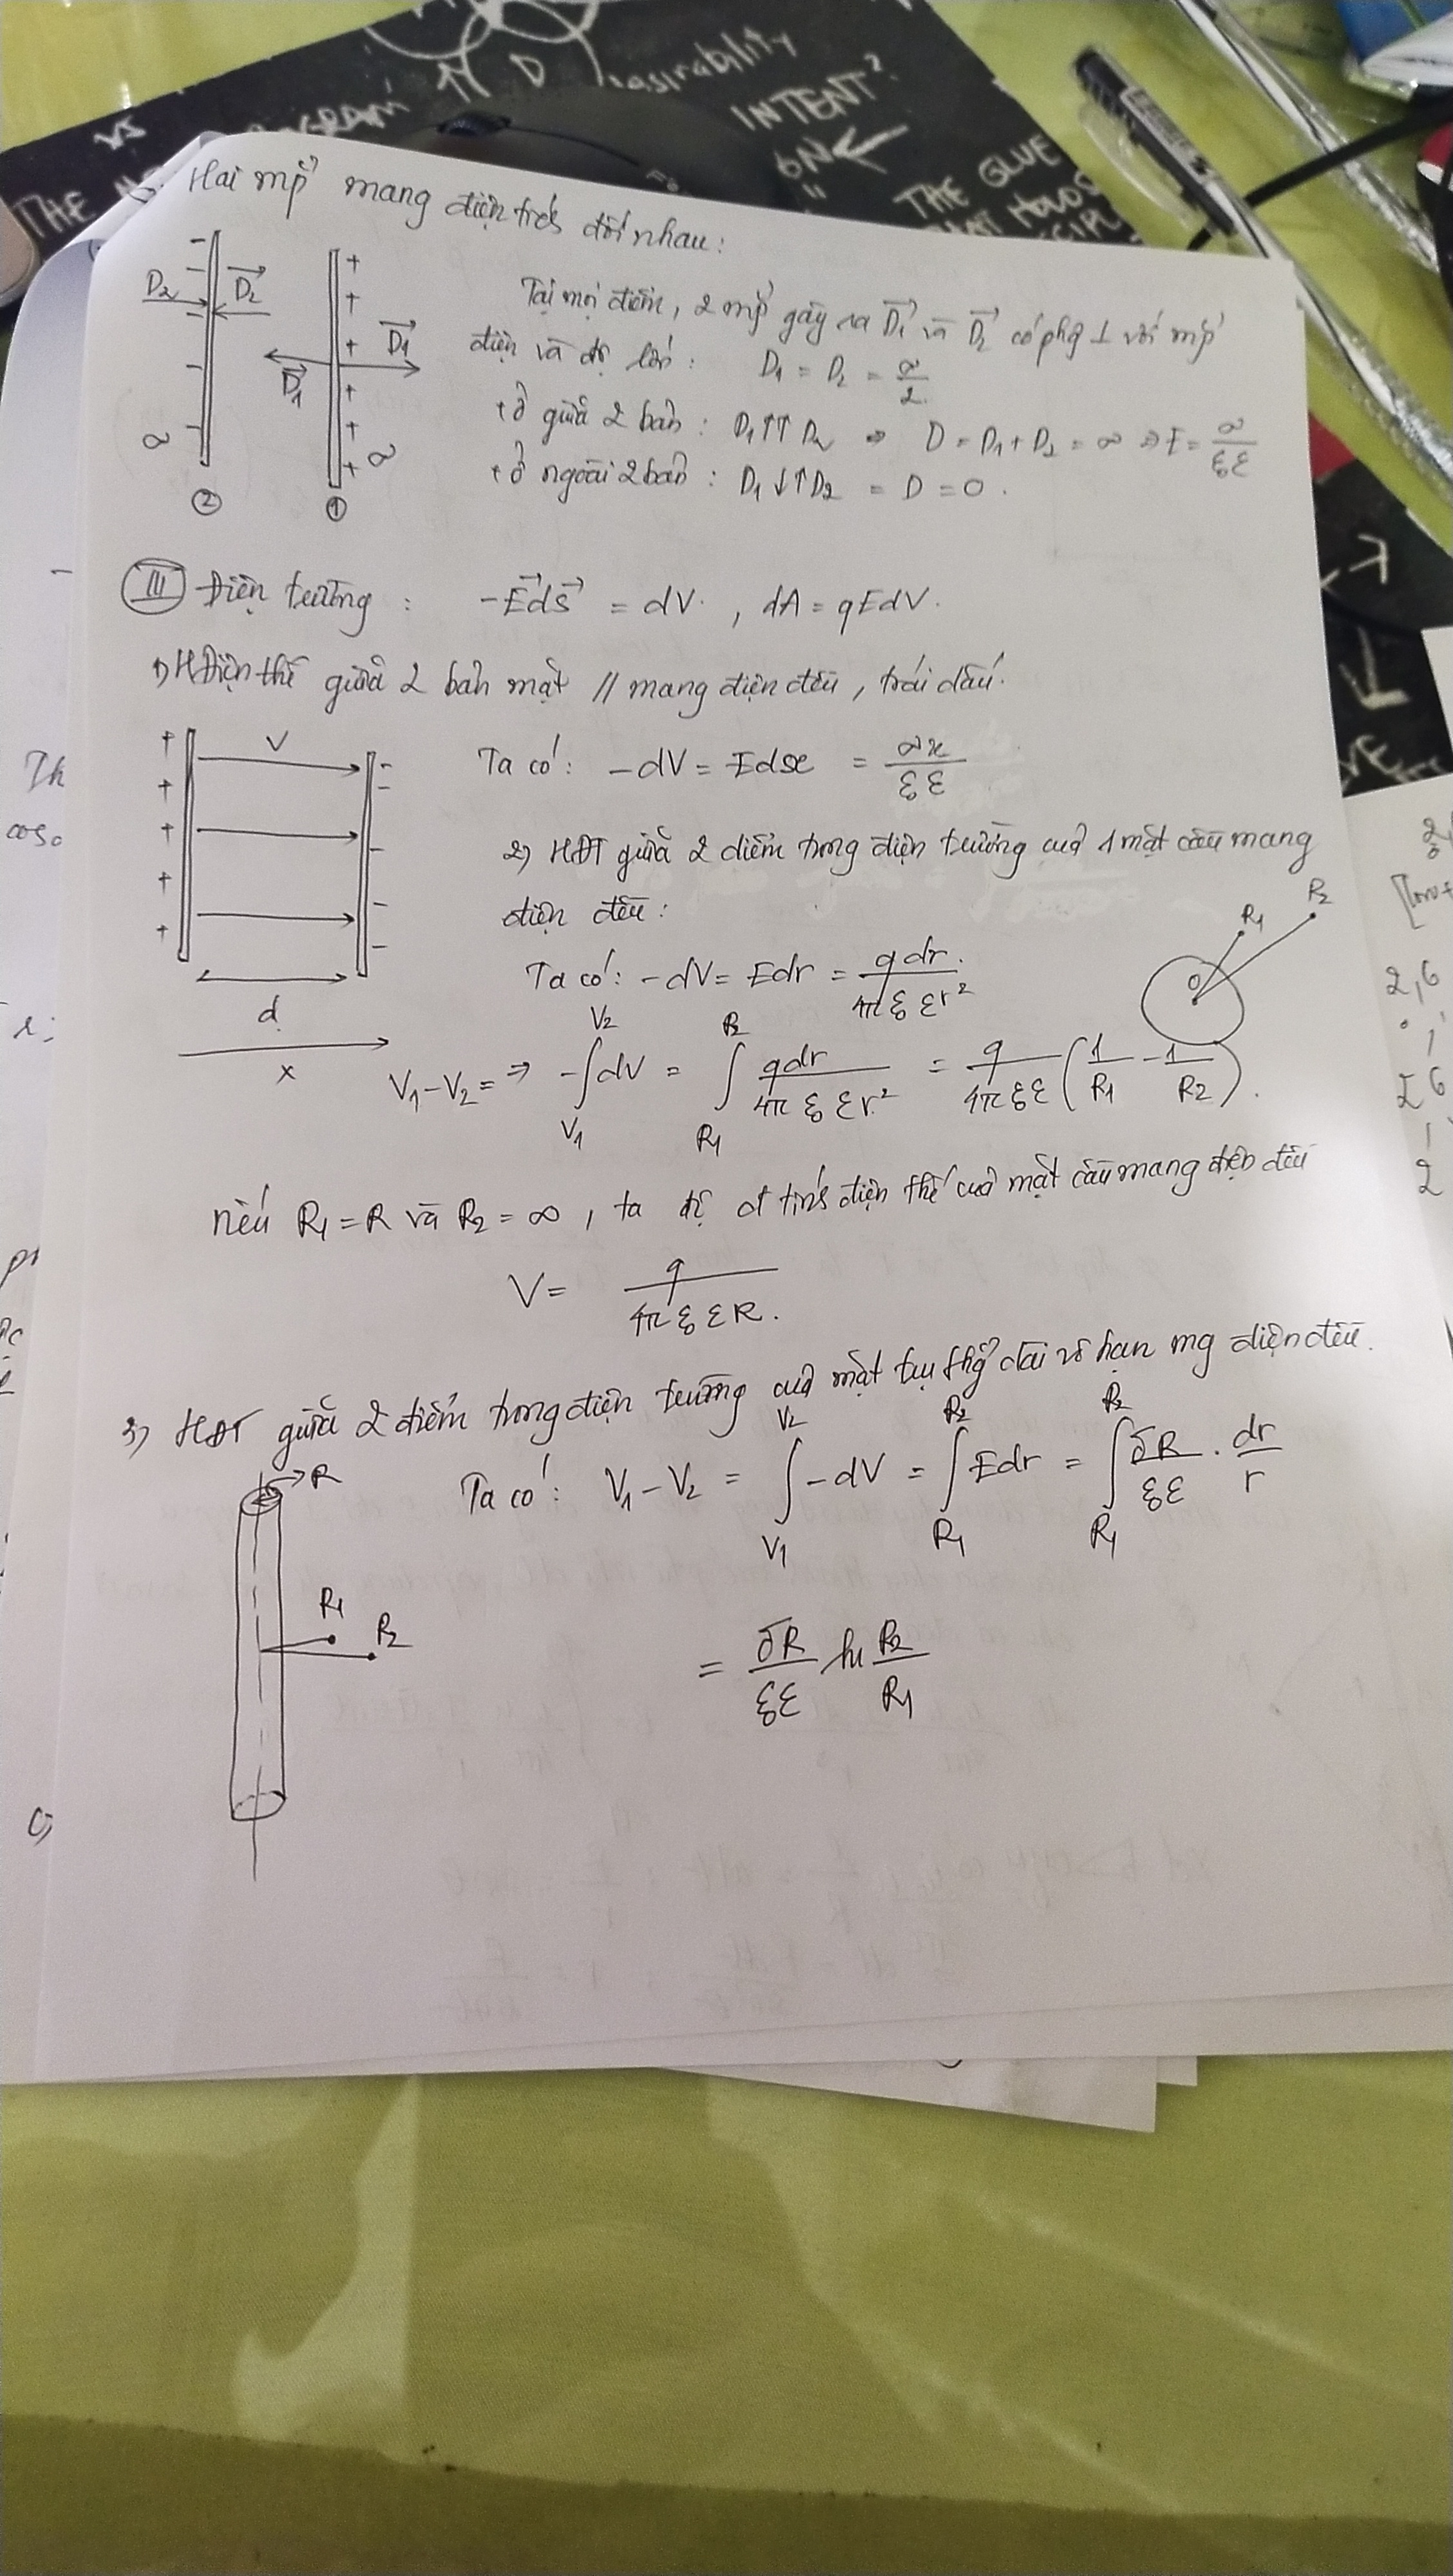 THE
GRAM
D
Desirability
INTENT?
THE GLUE
Hai mp' mang điện trái dấu nhau:
D₂ D₂
D₁ D₁
∞ ∞
② ①
Tại mọi điểm, 2 mp' gây ra D₁ và D₂ có phg ⊥ với mp'
điện và độ lớn: D₁ = D₂ = σ/2
+ Ở giữa 2 bản: D₁ ↑↑ D₂ ⇒ D = D₁ + D₂ = σ ⇒ E = σ/ε₀ε
+ ở ngoài 2 bản: D₁ ↓↑ D₂ = D = 0.
III Điện trường: -E⃗ds⃗ = dV, dA = qEdV.
1) HĐiện thế giữa 2 bản mặt // mang điện đều, trái dấu.
V
d
x
Ta có: -dV = Edx = σx/ε₀ε
2) HĐT giữa 2 điểm trong điện trường của 1 mặt cầu mang
điện đều:
R₁ R₂
O
Ta có: -dV = Edr = qdr/4πε₀εr²
V₁-V₂ = ⇒ -∫dV (V₁→V₂) = ∫ qdr/4πε₀εr² (R₁→R₂) = q/4πε₀ε (1/R₁ - 1/R₂).
nếu R₁ = R và R₂ = ∞, ta đc ct tính điện thế của mặt cầu mang điện đều
V = q/4πε₀εR.
3) HĐT giữa 2 điểm trong điện trường của mặt trụ thg dài vô hạn mg điện đều.
R
R₁
R₂
Ta có: V₁-V₂ = ∫-dV (V₁→V₂) = ∫Edr (R₁→R₂) = ∫ σR/ε₀ε . dr/r (R₁→R₂)
= σR/ε₀ε ln R₂/R₁